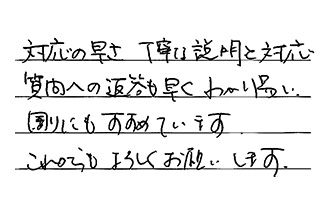 対応の早さ 丁寧な説明と対応
質問への返答も早く わかり易い.
周りにもすすめています
これからも よろしくお願いします.